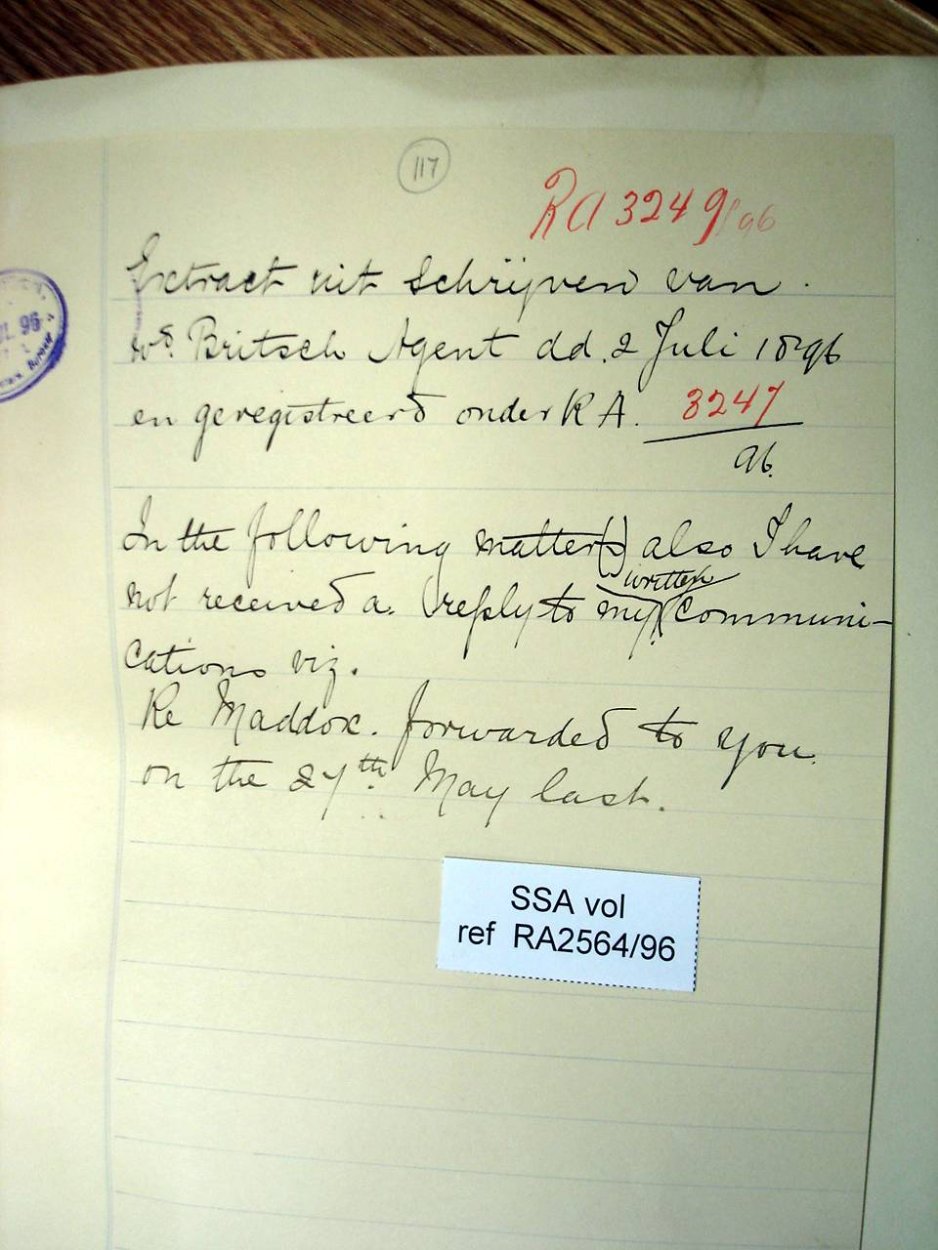 117
RA 3249/96
Extract uit Schrijven van
Britsch Agent dd. 2 Juli 1896
en geregistreerd onder R A. 3247
96.
In the following matter(s) also I have
written
not received a reply to my communi-
cations viz.
Re Maddox. forwarded to you
on the 27th. May last.
SSA vol
ref RA2564/96
96